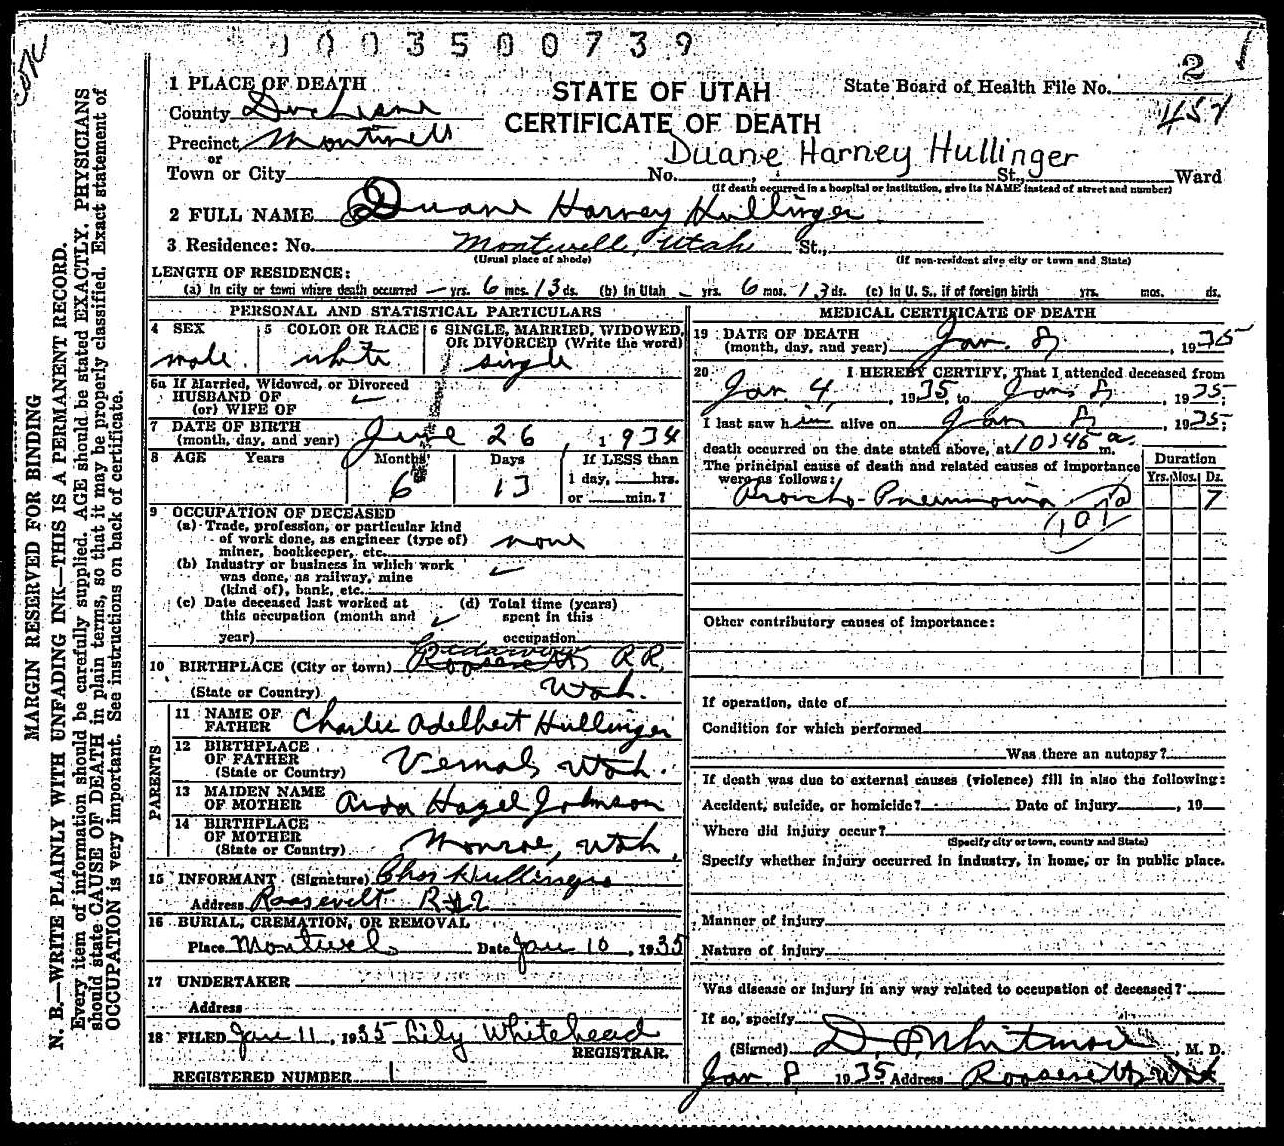 1003500739
2
1 PLACE OF DEATH
STATE OF UTAH
State Board of Health File No.
457
County Duchesne
CERTIFICATE OF DEATH
Precinct Montwell
or
Duane Harney Hullinger
Town or City No. , St., Ward
(If death occurred in a hospital or institution, give its NAME instead of street and number)
2 FULL NAME Duane Harney Hullinger
3 Residence: No. Montwell, Utah St.,
(Usual place of abode) (If non-resident give city or town and State)
LENGTH OF RESIDENCE:
(a) In city or town where death occurred – yrs. 6 mos. 13 ds. (b) In Utah – yrs. 6 mos. 13 ds. (c) In U. S., if of foreign birth yrs. mos. ds.
PERSONAL AND STATISTICAL PARTICULARS
4 SEX
male
5 COLOR OR RACE
white
6 SINGLE, MARRIED, WIDOWED, OR DIVORCED (Write the word)
single
6a If Married, Widowed, or Divorced
HUSBAND OF
(or) WIFE OF
7 DATE OF BIRTH
(month, day, and year) June 26, 1934
8 AGE Years Months Days If LESS than
1 day, hrs.
6 13 or min.?
9 OCCUPATION OF DECEASED
(a) Trade, profession, or particular kind
of work done, as engineer (type of)
miner, bookkeeper, etc. none
(b) Industry or business in which work
was done, as railway, mine
(kind of), bank, etc.
(c) Date deceased last worked at
this occupation (month and
year)
(d) Total time (years)
spent in this
occupation
Cedarview
10 BIRTHPLACE (City or town) Roosevelt RR
(State or Country) Utah.
PARENTS
11 NAME OF
FATHER Charlie Adelbert Hullinger
12 BIRTHPLACE
OF FATHER
(State or Country) Vernal, Utah.
13 MAIDEN NAME
OF MOTHER Arda Hazel Johnson
14 BIRTHPLACE
OF MOTHER
(State or Country) Monroe, Utah,
15 INFORMANT (Signature) Chas Hullinger
Address Roosevelt R#2
16 BURIAL, CREMATION, OR REMOVAL
Place Montwel Date Jan 10, 1935
17 UNDERTAKER
Address
18 FILED Jan 11, 1935 Lily Whitehead
REGISTRAR.
REGISTERED NUMBER 1
MEDICAL CERTIFICATE OF DEATH
19 DATE OF DEATH
(month, day, and year) Jan. 8, 1935
20 I HEREBY CERTIFY, That I attended deceased from
Jan 4, 1935, to Jan 8, 1935;
I last saw him alive on Jan 8, 1935;
death occurred on the date stated above, at 10:45 a. m.
The principal cause of death and related causes of importance
were as follows:
Duration
Yrs. Mos. Ds.
Broncho-Pneumonia 7
107a
Other contributory causes of importance:
If operation, date of
Condition for which performed
Was there an autopsy?
If death was due to external causes (violence) fill in also the following:
Accident, suicide, or homicide? Date of injury , 19
Where did injury occur?
(Specify city or town, county and State)
Specify whether injury occurred in industry, in home, or in public place.
Manner of injury
Nature of injury
Was disease or injury in any way related to occupation of deceased?
If so, specify
(Signed) D. P. Whitmore, M. D.
Jan 8 1935 Address Roosevelt Utah
MARGIN RESERVED FOR BINDING
N. B.—WRITE PLAINLY WITH UNFADING INK—THIS IS A PERMANENT RECORD.
Every item of information should be carefully supplied. AGE should be stated EXACTLY. PHYSICIANS
should state CAUSE OF DEATH in plain terms, so that it may be properly classified. Exact statement of
OCCUPATION is very important. See instructions on back of certificate.